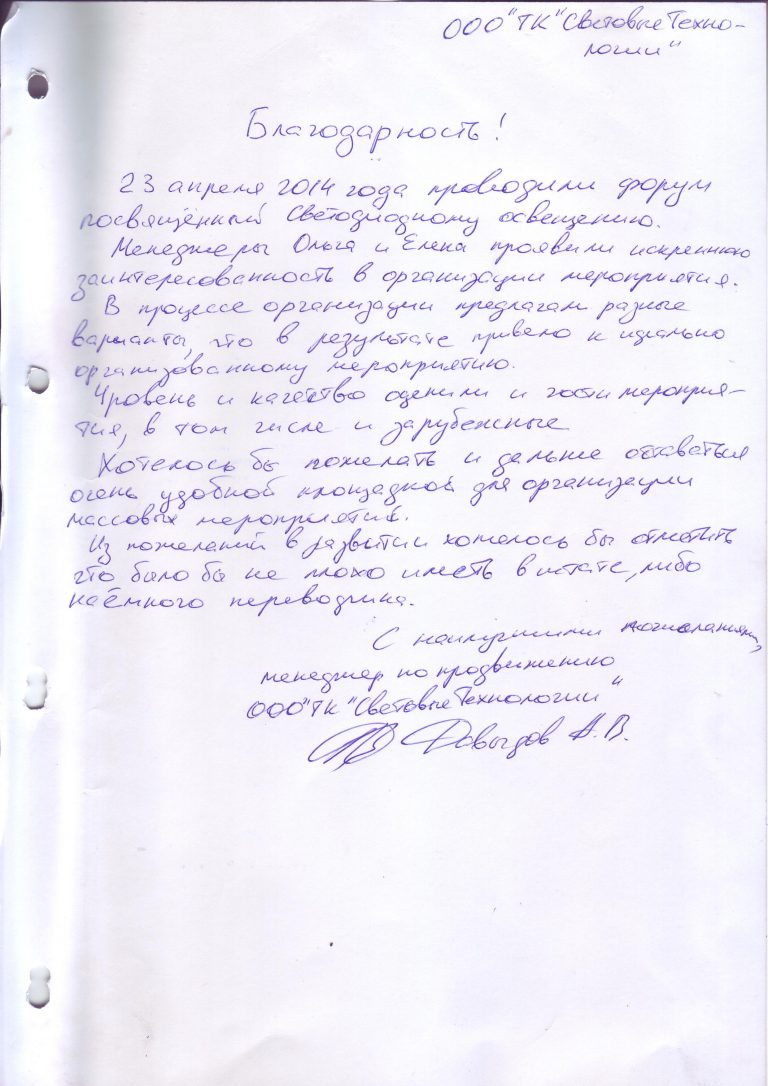 ООО "ТК "СветовыеТехно-
логии"
Благодарность!
23 апреля 2014 года проводили форум
посвящённый Светодиодному освещению.
Менеджеры Ольга и Елена проявили искреннюю
заинтересованность в организации мероприятия.
В процессе организации предлагали разные
варианты, что в результате привело к идеально
организованному мероприятию.
Уровень и качество оценили и гости мероприя-
тия, в том числе и зарубежные
Хотелось бы пожелать и дальше оставаться
очень удобной площадкой для организации
массовых мероприятий.
Из пожеланий в развитии хотелось бы отметить
что было бы не плохо иметь в штате, либо
наёмного переводчика.
С наилучшими пожеланиями,
менеджер по продвижению
ООО "ТК "СветовыеТехнологии"
Давыдов А.В.